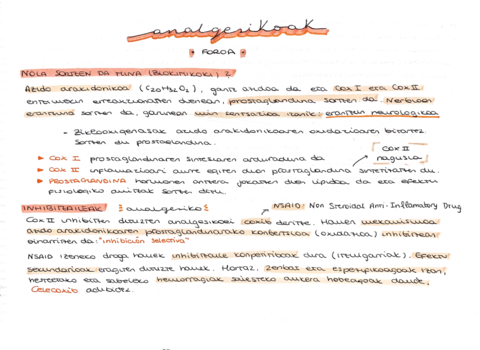 analgesikoak
FOROA
NOLA SORTEN DA MINA (BIOKIMIKOKI)?
Azido arakidonikoa (C₂₀H₃₂O₂), gantz azidoa da eta COX I eta COX II
entzimekin erreakzionatzen duenean, prostaglandina sortzen da. Nerbioen
erantzuna sortzen da, garunean min sentsazioa izanik: erantzun neurologikoa
- Ziklooxigenasak azido arakidonikoaren oxidazioaren bitartez
sortzen du prostaglandina.
COX II
nagusia
▶ COX I prostaglandinaren sintesiaren arduraduna da
▶ COX II inflamazioari aurre egiten dion prostaglandina sintetizatzen du.
▶ PROSTAGLANDINA hormonen antzera jokatzen duen lipidoa da eta efektu
fisiologiko anitzak sortzen ditu.
INHIBITZAILEAK analgesiko NSAID: Non Steroidal Anti-Inflamatory Drug
COX II inhibitzen dituzten analgesikoei coxib deritze. Hauen mekanismoa
azido arakidonikoaren prostaglandinarako konbertsioa (oxidazioa) inhibitzean
oinarritzen da: "inhibición selectiva"
NSAID izeneko droga hauek inhibitzaile konpetitiboak dira (itzulgarriak). Efektu
sekundarioak eragiten dituzte hauek. Hortaz, zenbat eta espezifikoagoak izan,
hesteetako eta sabeleko hemorragiak saihesteko aukera hobeagoak daude,
Celecoxib adibidez.